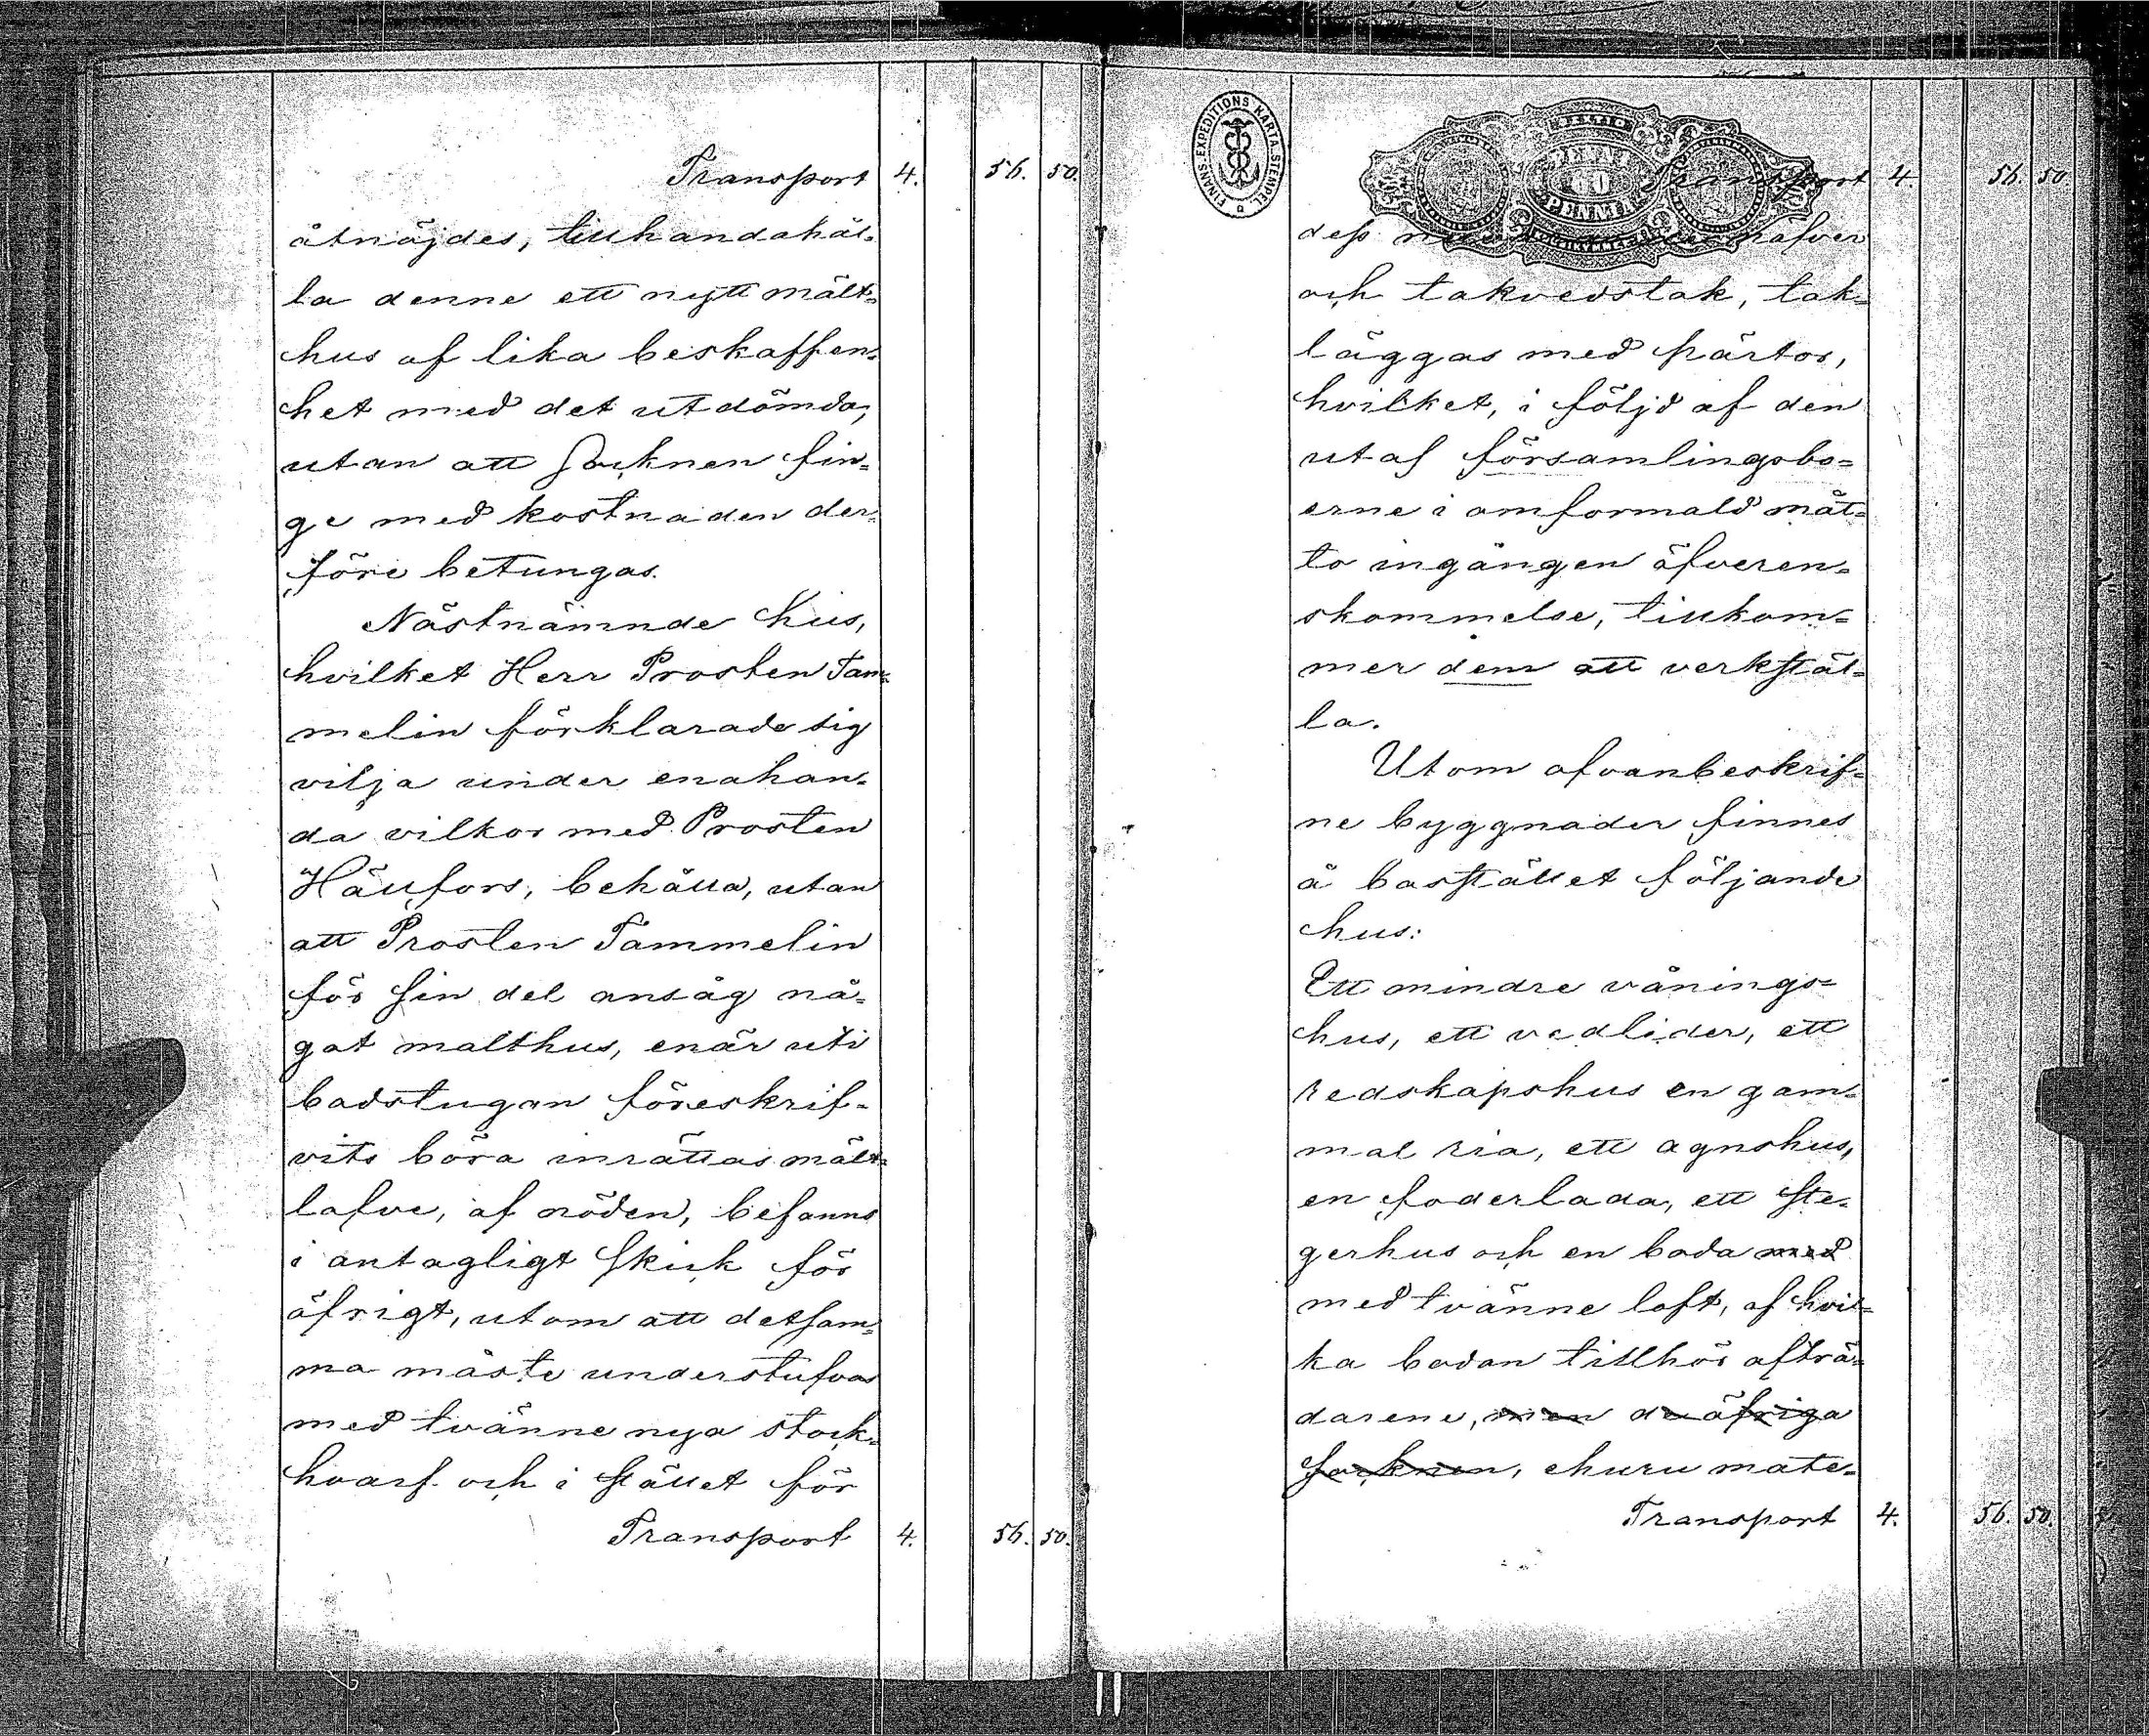 Transport 4. 56. 50.
åtnöjdes, tillhandahål-
la denne ett nytt mält-
hus af lika beskaffen-
het med det utdömda,
utan att Socknen fin-
ge med kostnaden der-
före betungas.
Nästnämnde hus,
hvilket Herr Prosten Tam-
melin förklarade sig
vilja under enahan-
da vilkor med Prosten
Hällfors, behålla, utan
att Prosten Tammelin
för sin del ansåg nå-
got malthus, enär uti
badstugan föreskrif-
vits böra inrättas mält-
lafve, af nöden, befanns
i antagligt skick för
öfrigt, utom att detsam-
ma måste understufvas
med tvänne nya stock-
hvarf och i stället för
Transport 4. 56. 50.
FINANS-EXPEDITIONS KARTA-STEMPEL
60
PENNIÄ
Transport 4. 56. 50
dess
och takvedstak, tak-
läggas med pärtor,
hvilket, i följd af den
utaf församlingsbo-
erne i omformald måt-
to ingången öfveren-
skommelse, tillkom-
mer dem att verkstäl-
la.
Utom ofvanbeskrif-
ne byggnader finnes
å bostället följande
hus:
Ett mindre vånings-
hus, ett vedlider, ett
redskapshus en gam-
mal ria, ett agnshus,
en foderlada, ett ste-
gerhus och en boda med
med tvänne loft, af hvil-
ka bodan tillhör afträ-
darene, men de öfriga
Socknen, ehuru mate-
Transport 4. 56. 50.